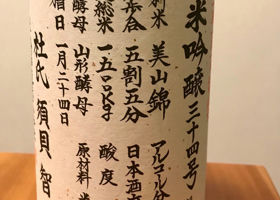 米吟醸三十四号
米 美山錦 アルコール分
歩合 五割五分 日本酒
総米 酸度
酵母 山形酵母 原材料
日 一月二十四日
杜氏 須貝 智